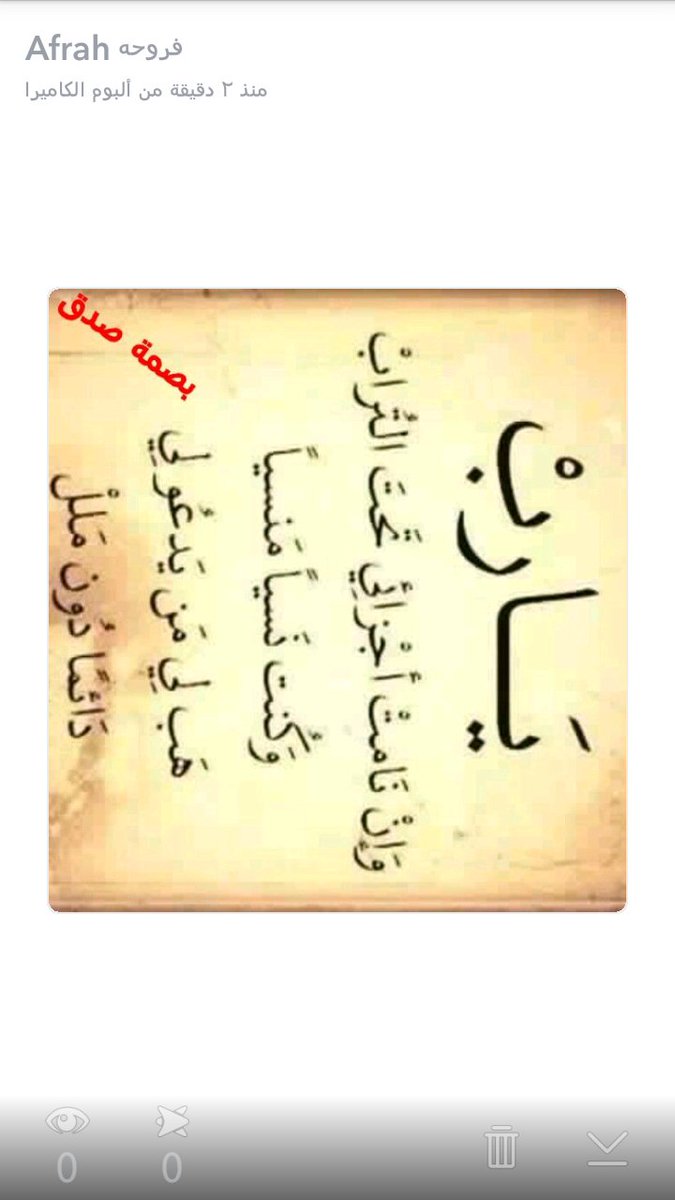 Afrah فروحه
منذ ٢ دقيقة من ألبوم الكاميرا
بصمة صدق
يَـاربْ
وَإنْ نَامتْ أجْزائِي تَحْتَ التُرابْ
وَكُنت نَسياً مَنسياً
هَب لِي مَن يَدعُو لِي
دَائمًا دُون مَللْ
0
0